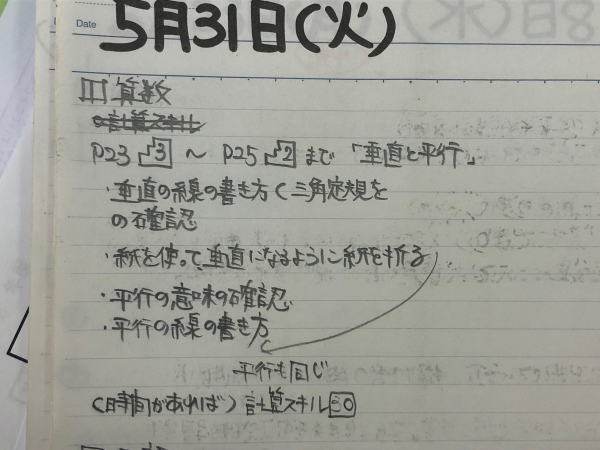 Date
5月31日(火)
III 算数
・計算スキル
P23 3 ～ P25 2 まで 「垂直と平行」
・垂直の線の書き方く三角定規を
の確認
・紙を使って、垂直になるように紙を折る
・平行の意味の確認
・平行の線の書き方
平行も同じ
(時間があれば) 計算スキル